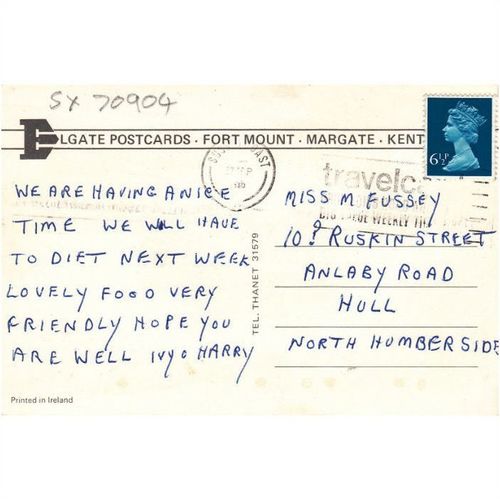 SX 70904
ELGATE POSTCARDS · FORT MOUNT · MARGATE · KENT
6½P
travelca
WE ARE HAVING A NICE
TIME WE WILL HAVE
TO DIET NEXT WEEK
LOVELY FOOD VERY
FRIENDLY HOPE YOU
ARE WELL IVY & HARRY
TEL. THANET 31579
MISS M FUSSEY
RUSKIN STREET
ANLABY ROAD
HULL
NORTH HUMBERSIDE
Printed in Ireland